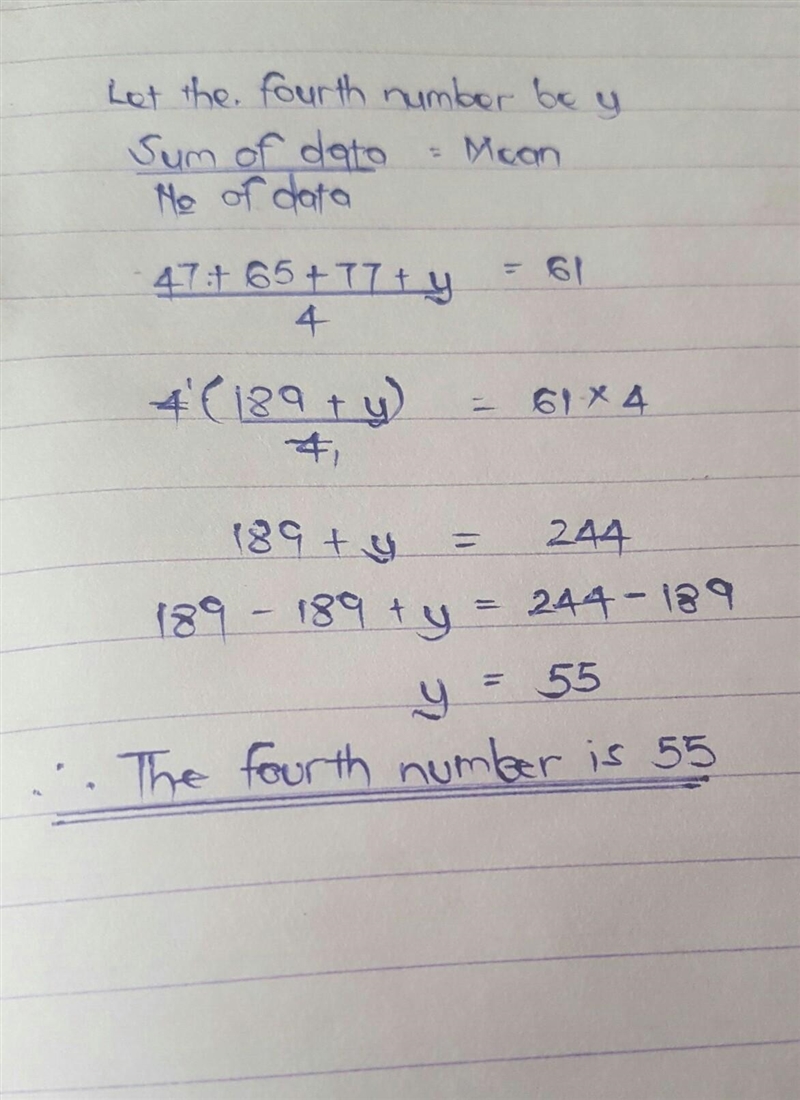 Let the. fourth number be y
Sum of data = Mean
No of data
47 + 65 + 77 + y = 61
4
4¹(189 + y) = 61 × 4
4₁
189 + y = 244
189 - 189 + y = 244 - 189
y = 55
∴ The fourth number is 55